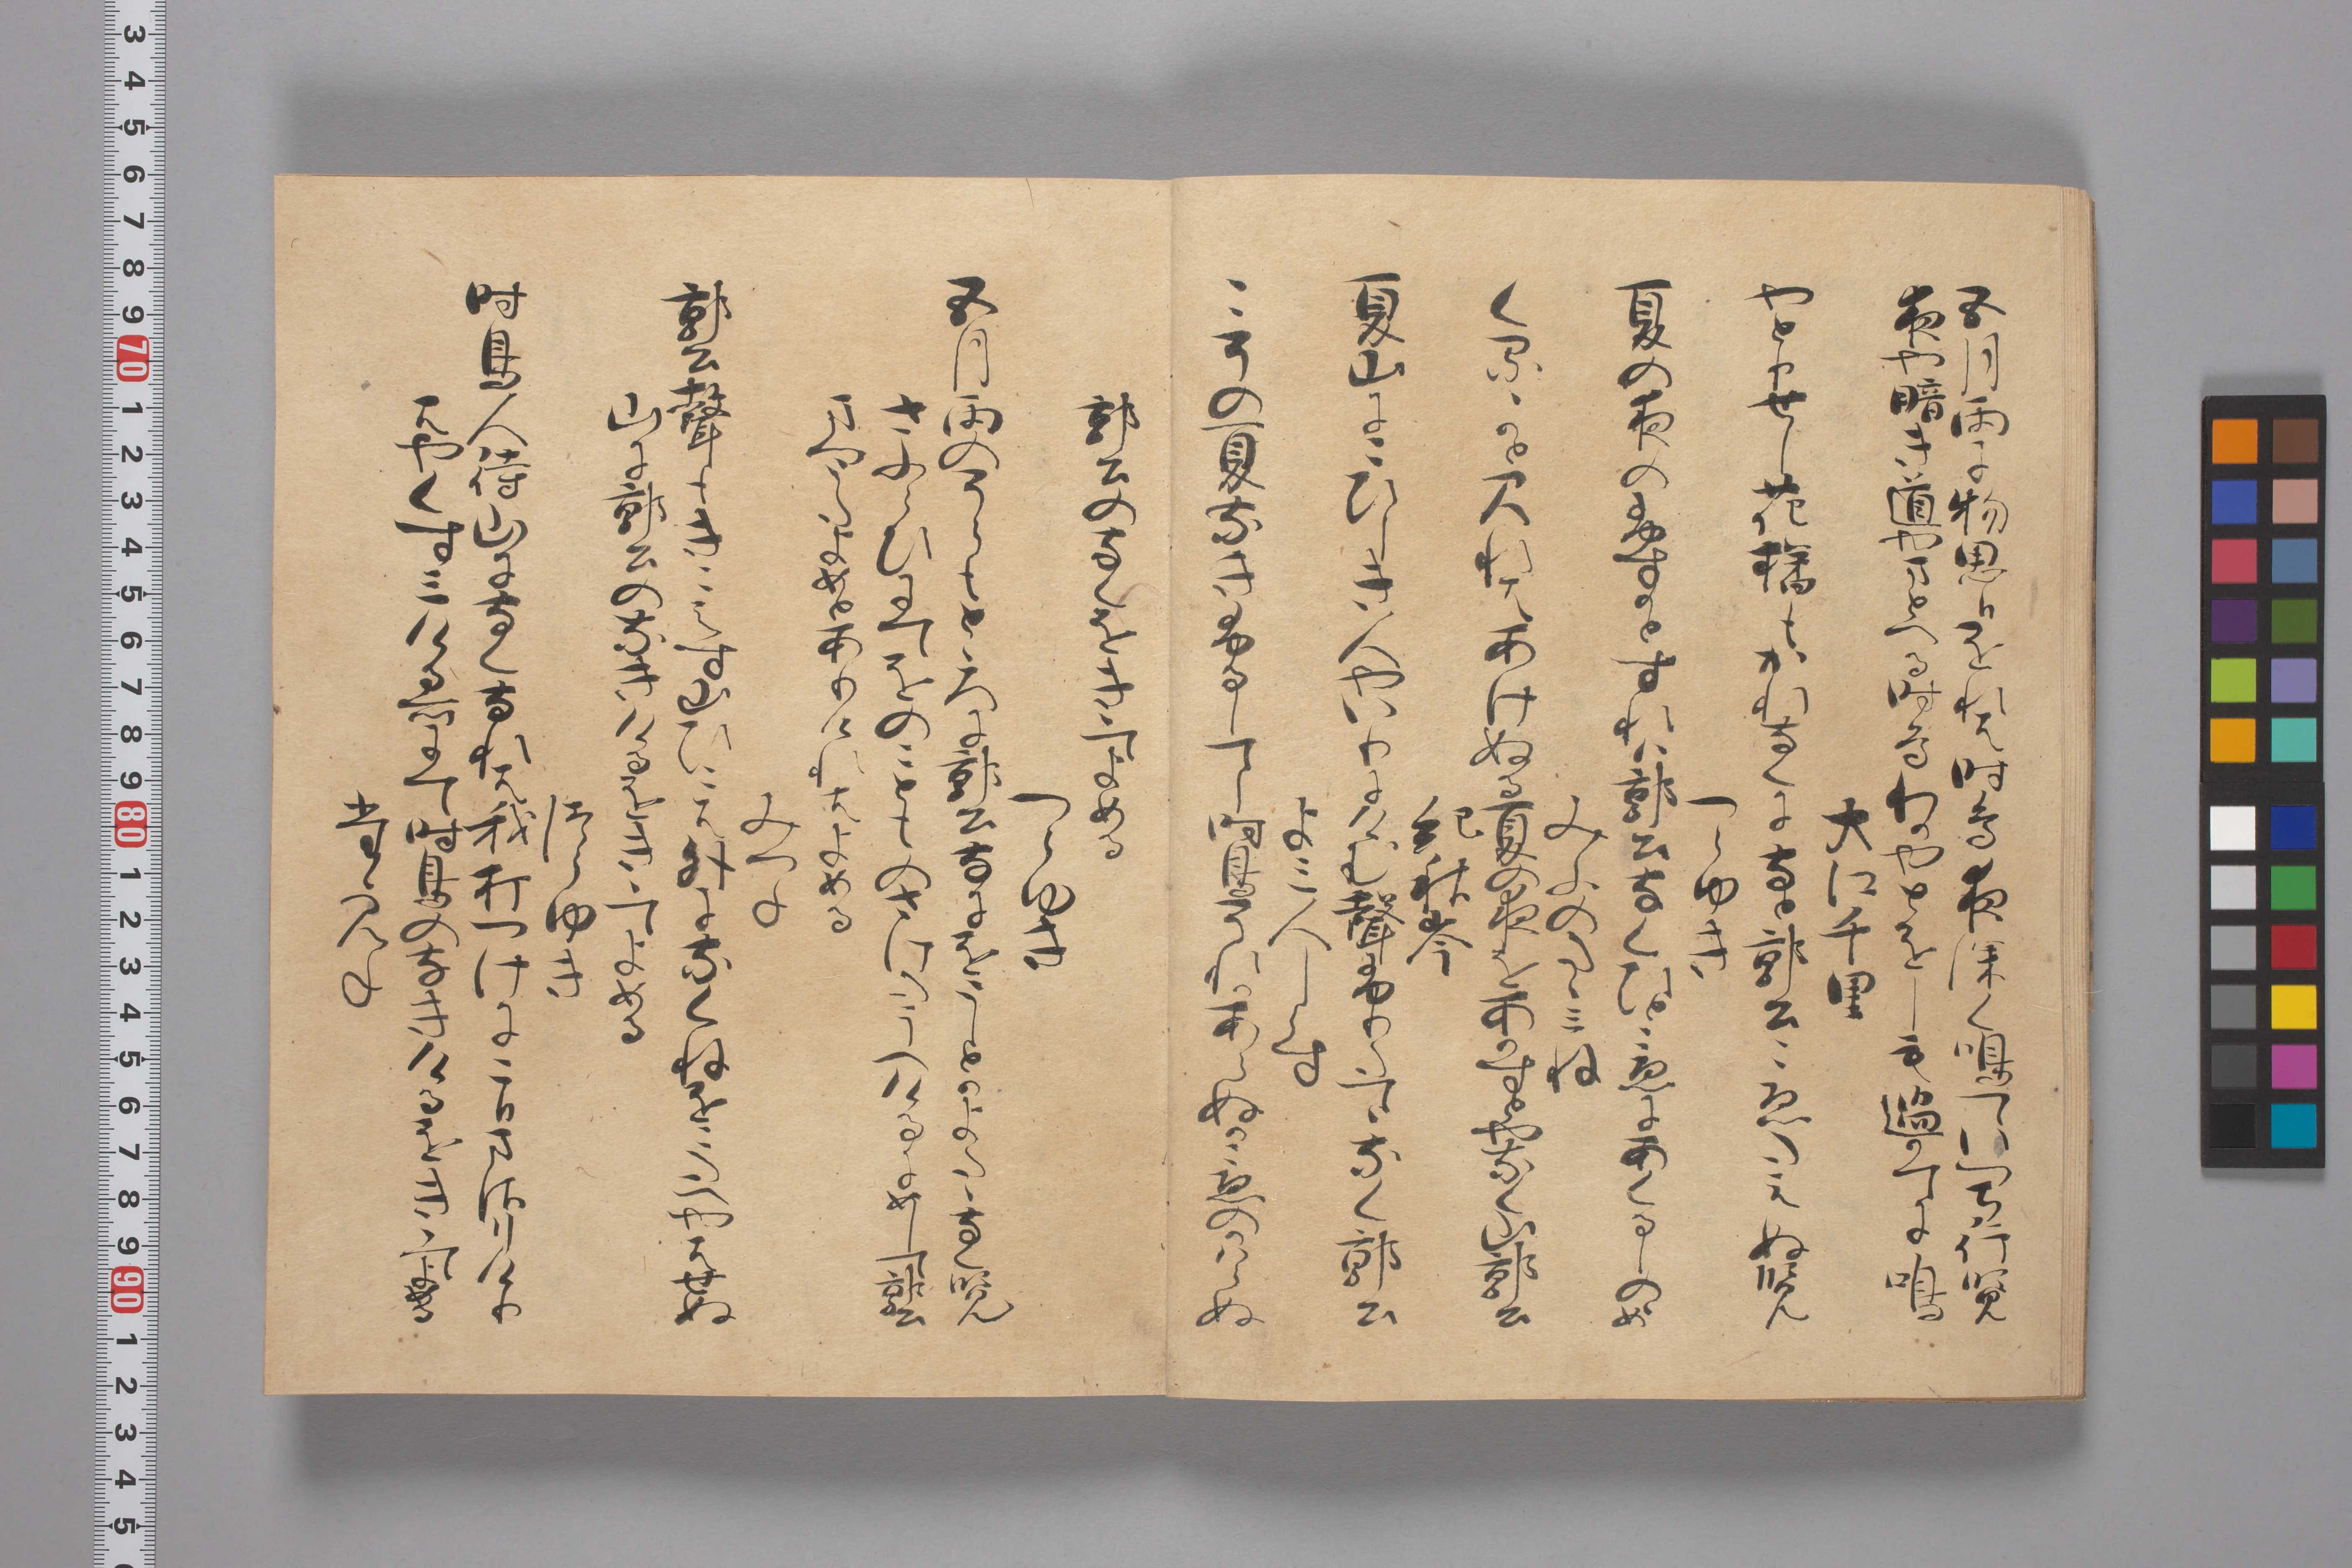 五月雨に物思をれは時鳥夜深く鳴ていつちゆく覧
夜や暗き道やまとへる時鳥わかやとをしも過かてに鳴
大江千里
やとりせし花橘もかれなくになと郭公こゑたえぬ覧
つらゆき
夏の夜のふすかとすれは郭公なくひとこゑにあくるしのゝめ
みふのたゝみね
くるゝかとみれはあけぬる夏の夜をあかすとやなく山郭公
紀秋岑
夏山にこひしき人やいりにけむ聲ふりたてゝなく郭公
よみ人しらす
こその夏なきふるしてし時鳥それかあらぬかこゑのかはらぬ
郭公のなくをきゝてよめる
つらゆき
五月雨のそらもとゝろに郭公なにをうしとかよたゝなく覧
さふらひにてをのこともの さけたうへけるにめして郭公
まつうたよめとありけれはよめる
みつね
郭公聲もきこえす山ひこはほかになくねをこたへやはせぬ
山に郭公のなきけるをきゝてよめる
つらゆき
時鳥人待山になくなれは我うちつけにこひまさりけり
はやくすみける所にて時鳥のなきけるをきゝてよめる
たゝみね